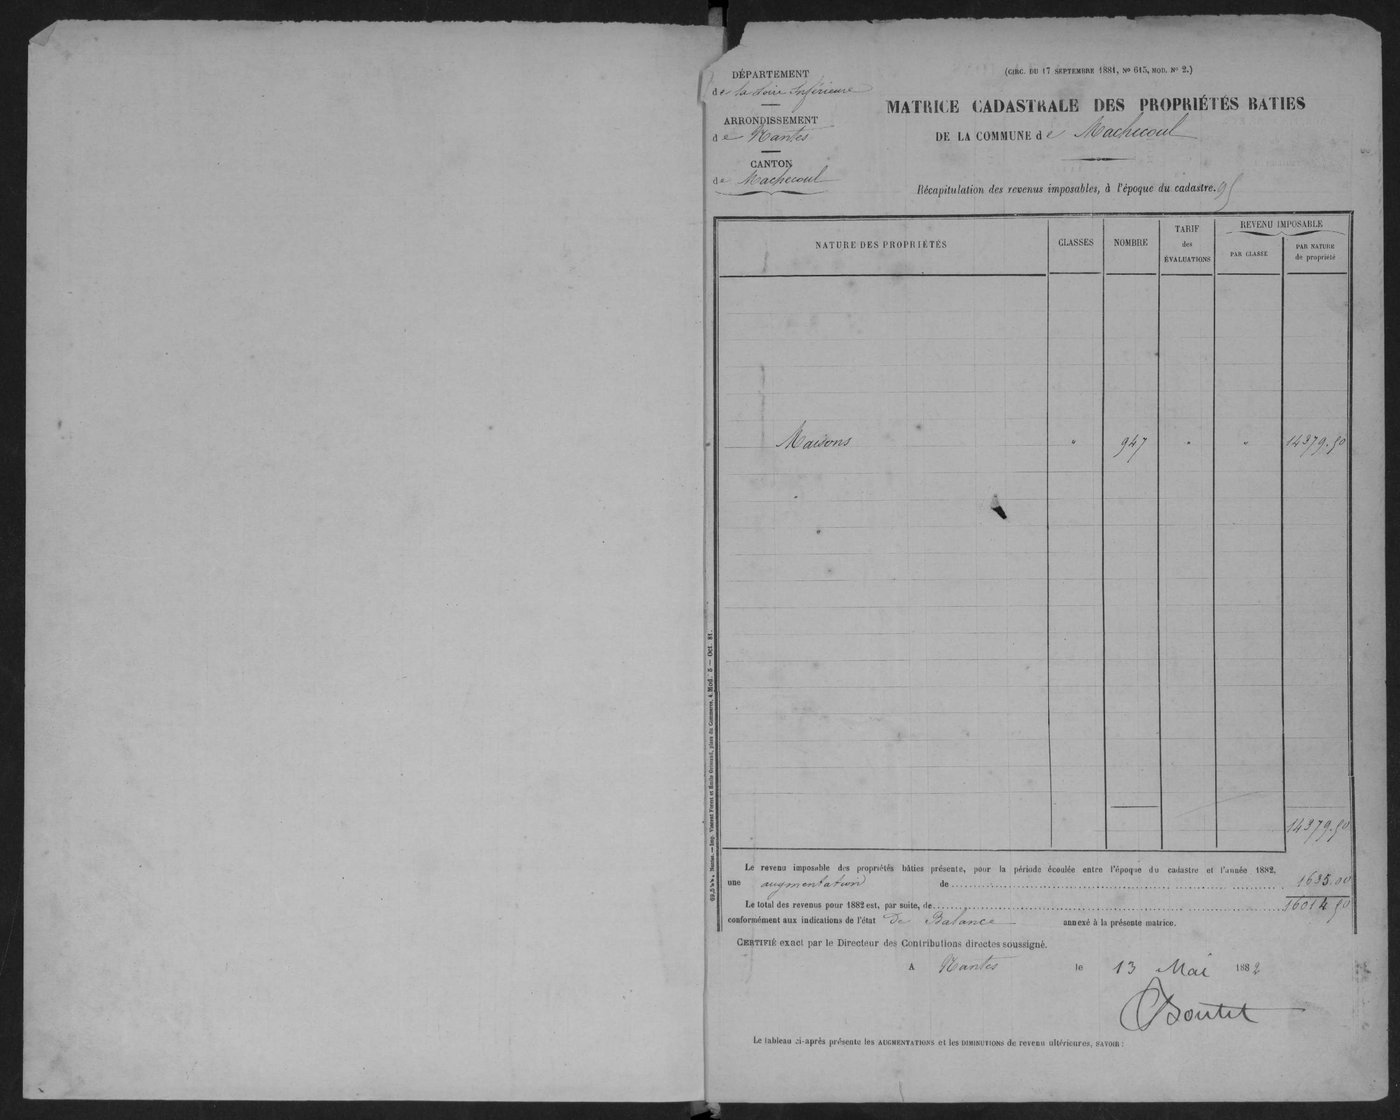 DÉPARTEMENT
de la Loire Inférieure
ARRONDISSEMENT
de Nantes
CANTON
de Machecoul
(CIRC. DU 17 SEPTEMBRE 1881, No 615, MOD. No 2.)
MATRICE CADASTRALE DES PROPRIÉTÉS BATIES
DE LA COMMUNE de Machecoul
Récapitulation des revenus imposables, à l'époque du cadastre.
NATURE DES PROPRIÉTÉS
CLASSES
NOMBRE
TARIF
des
ÉVALUATIONS
REVENU IMPOSABLE
PAR CLASSE
PAR NATURE
de propriété
Maisons " 947 " " 14379.50
14379.50
Le revenu imposable des propriétés bâties présente, pour la période écoulée entre l'époque du cadastre et l'année 1882,
une augmentation de 1635.00
Le total des revenus pour 1882 est, par suite, de 16014 50
conformément aux indications de l'état de Balance annexé à la présente matrice.
CERTIFIÉ exact par le Directeur des Contributions directes soussigné.
A Nantes le 13 Mai 1882
Boutet
Le tableau ci-après présente les AUGMENTATIONS et les DIMINUTIONS de revenu ultérieures, SAVOIR :
Nantes. — Imp. Vincent Forest et Émile Grimaud, place du Commerce, 4. Mod. 5 — Oct. 81.